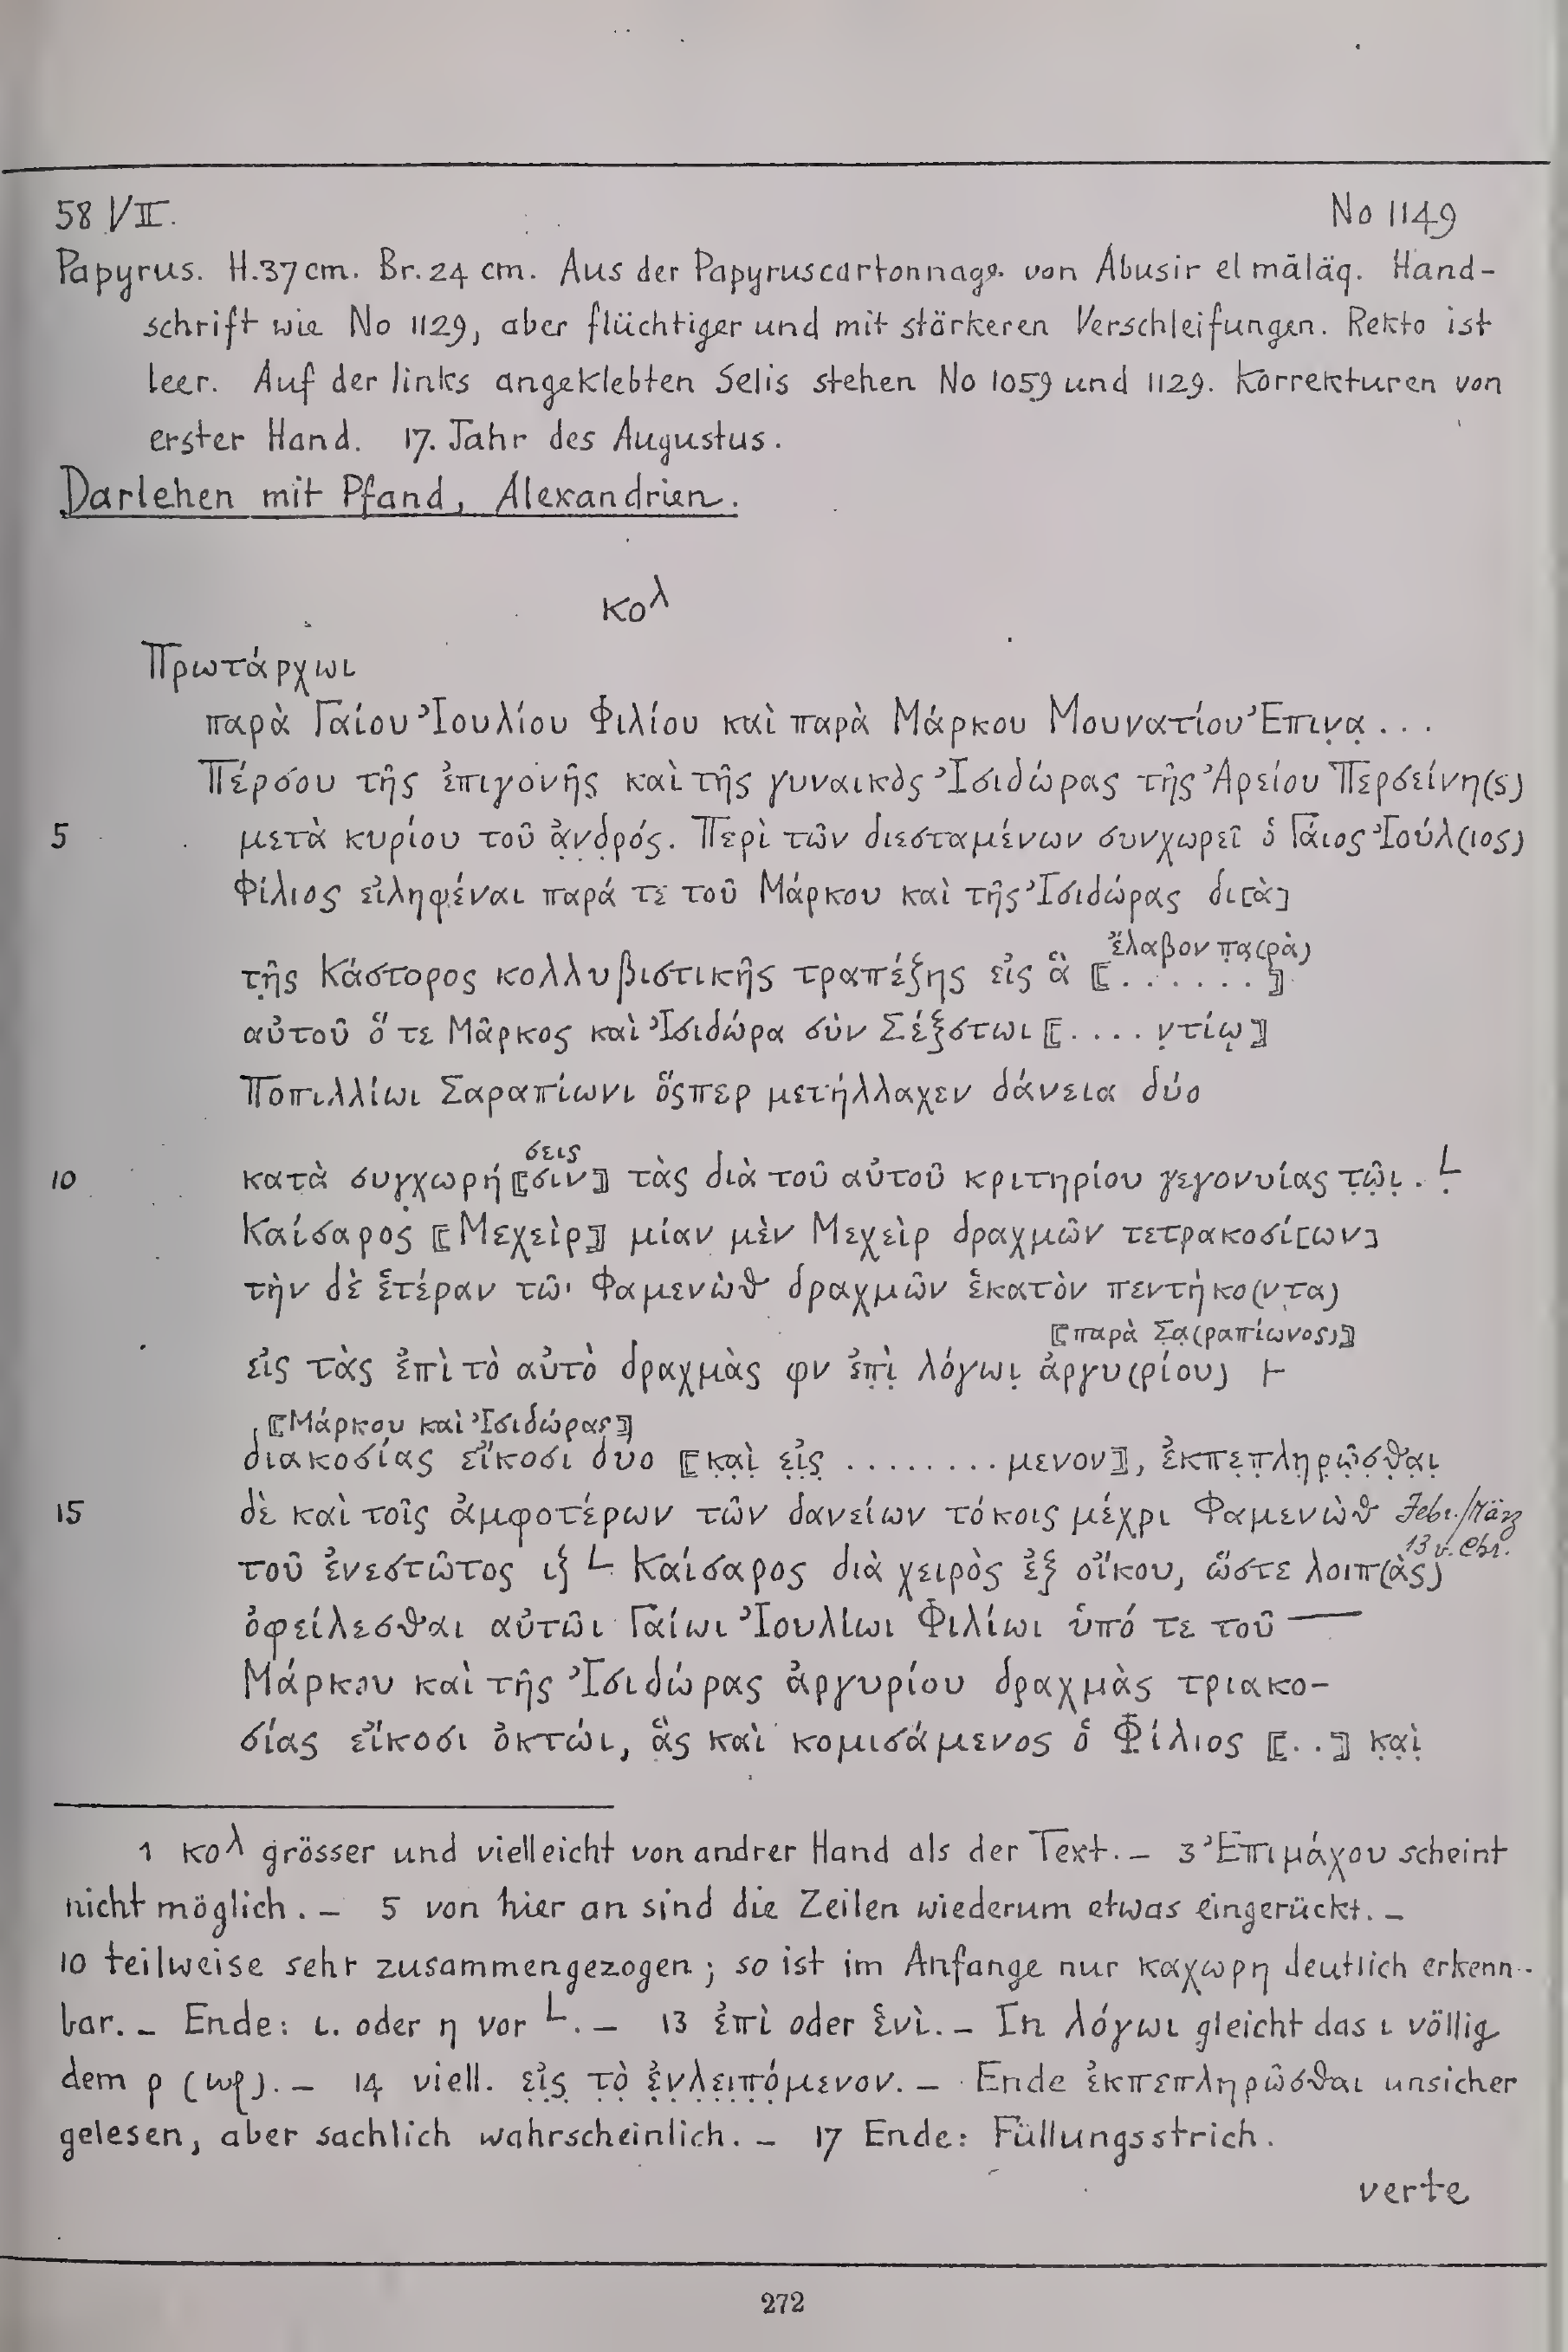 58 VII.
No 1149
Papyrus. H.37cm. Br.24 cm. Aus der Papyruscartonnage von Abusir el mäläq. Hand-
schrift wie No 1129, aber flüchtiger und mit stärkeren Verschleifungen. Rekto ist
leer. Auf der links angeklebten Selis stehen No 1059 und 1129. Korrekturen von
erster Hand. 17. Jahr des Augustus.
Darlehen mit Pfand, Alexandrien.
κολ
Πρωτάρχωι
παρὰ Γαίου Ἰουλίου Φιλίου καὶ παρὰ Μάρκου Μουνατίου Ἐπιν̣α̣ . . .
Πέρσου τῆς ἐπιγονῆς καὶ τῆς γυναικὸς Ἰσιδώρας τῆς Ἀρείου Περσείνη(ς)
5 μετὰ κυρίου τοῦ ἀ̣ν̣δ̣ρός. Περὶ τῶν διεσταμένων συνχωρεῖ ὁ Γάιος Ἰούλ(ιος)
Φίλιος εἰληφέναι παρά τε τοῦ Μάρκου καὶ τῆς Ἰσιδώρας δι[ὰ]
ἔλαβον π̣α̣(ρὰ)
τ̣ῆς Κάστορος κολλυβιστικῆς τραπέζης εἰς ἃ ⟦. . . . . .⟧
αὐτοῦ ὅ τε Μᾶρκος καὶ Ἰσιδώρα σὺν Σέξστωι ⟦. . . . ν̣τίῳ⟧
Ποπιλλίωι Σαραπίωνι ὅςπερ μετήλλαχεν δάνεια δύο
σεις
10 κατὰ συγ̣χωρή⟦σιν⟧ τὰς διὰ τοῦ αὐτοῦ κριτηρίου γεγονυίας τ̣ῶ̣ι̣ . Ḷ
Καίσαρος ⟦Μεχεὶρ⟧ μίαν μὲν Μεχεὶρ δραχμῶν τετρακοσί[ων]
τὴν δὲ ἑτέραν τῶι Φαμενὼθ δραχμῶν ἑκατὸν πεντήκο(ντα)
⟦παρὰ Σα(ραπίωνος)⟧
εἰς τὰς ἐπὶ τὸ αὐτὸ δραχμὰς φν ἐ̣π̣ὶ̣ λόγωι̣ ἀ̣ργυ(ρίου) ⊦
⟦Μάρκου καὶ Ἰσιδώρας⟧
διακοσίας εἴκοσι δύο ⟦κ̣α̣ὶ̣ ε̣ἰ̣ς̣ . . . . . . . . μενον⟧, ἐκπε̣π̣λη̣ρ̣ῶ̣σ̣θ̣α̣ι̣
15 δὲ καὶ τοῖς ἀμφοτέρων τῶν δανείων τόκοις μέχρι Φαμενὼθ Febr./März
13 v. Chr.
τοῦ ἐνεστῶτος ιξ L Καίσαρος διὰ χειρὸς ἐξ οἴκου, ὥστε λοιπ(ὰς)
ὀφείλεσθαι αὐτῶι Γαίωι Ἰουλίωι Φιλίωι ὑπό τε τοῦ —
Μάρκου καὶ τῆς Ἰσιδώρας ἀργυρίου δραχμὰς τριακο-
σίας εἴκοσι ὀκτώι, ἃς καὶ κομισάμενος ὁ Φίλιος ⟦. .⟧ κ̣α̣ὶ̣
1 κολ grösser und vielleicht von andrer Hand als der Text. – 3 Ἐπιμάχου scheint
nicht möglich. – 5 von hier an sind die Zeilen wiederum etwas eingerückt. –
10 teilweise sehr zusammengezogen; so ist im Anfange nur καχωρη deutlich erkenn-
bar. – Ende: ι. oder η vor L. – 13 ἐπὶ oder ἑνὶ. – In λόγωι gleicht das ι völlig
dem ρ (ωρ). – 14 viell. ε̣ἰ̣ς̣ τ̣ὸ̣ ἐ̣ν̣λ̣ε̣ι̣π̣ό̣μενον. – Ende ἐκπεπληρῶσθαι unsicher
gelesen, aber sachlich wahrscheinlich. – 17 Ende: Füllungsstrich.
verte
272